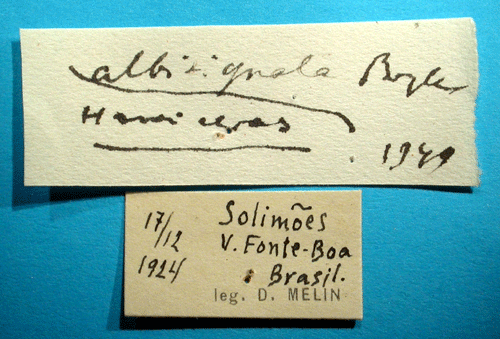 albisignata
1949
17/12 1924
Solimões
V. Fonte-Boa
Brasil.
leg. D. MELIN